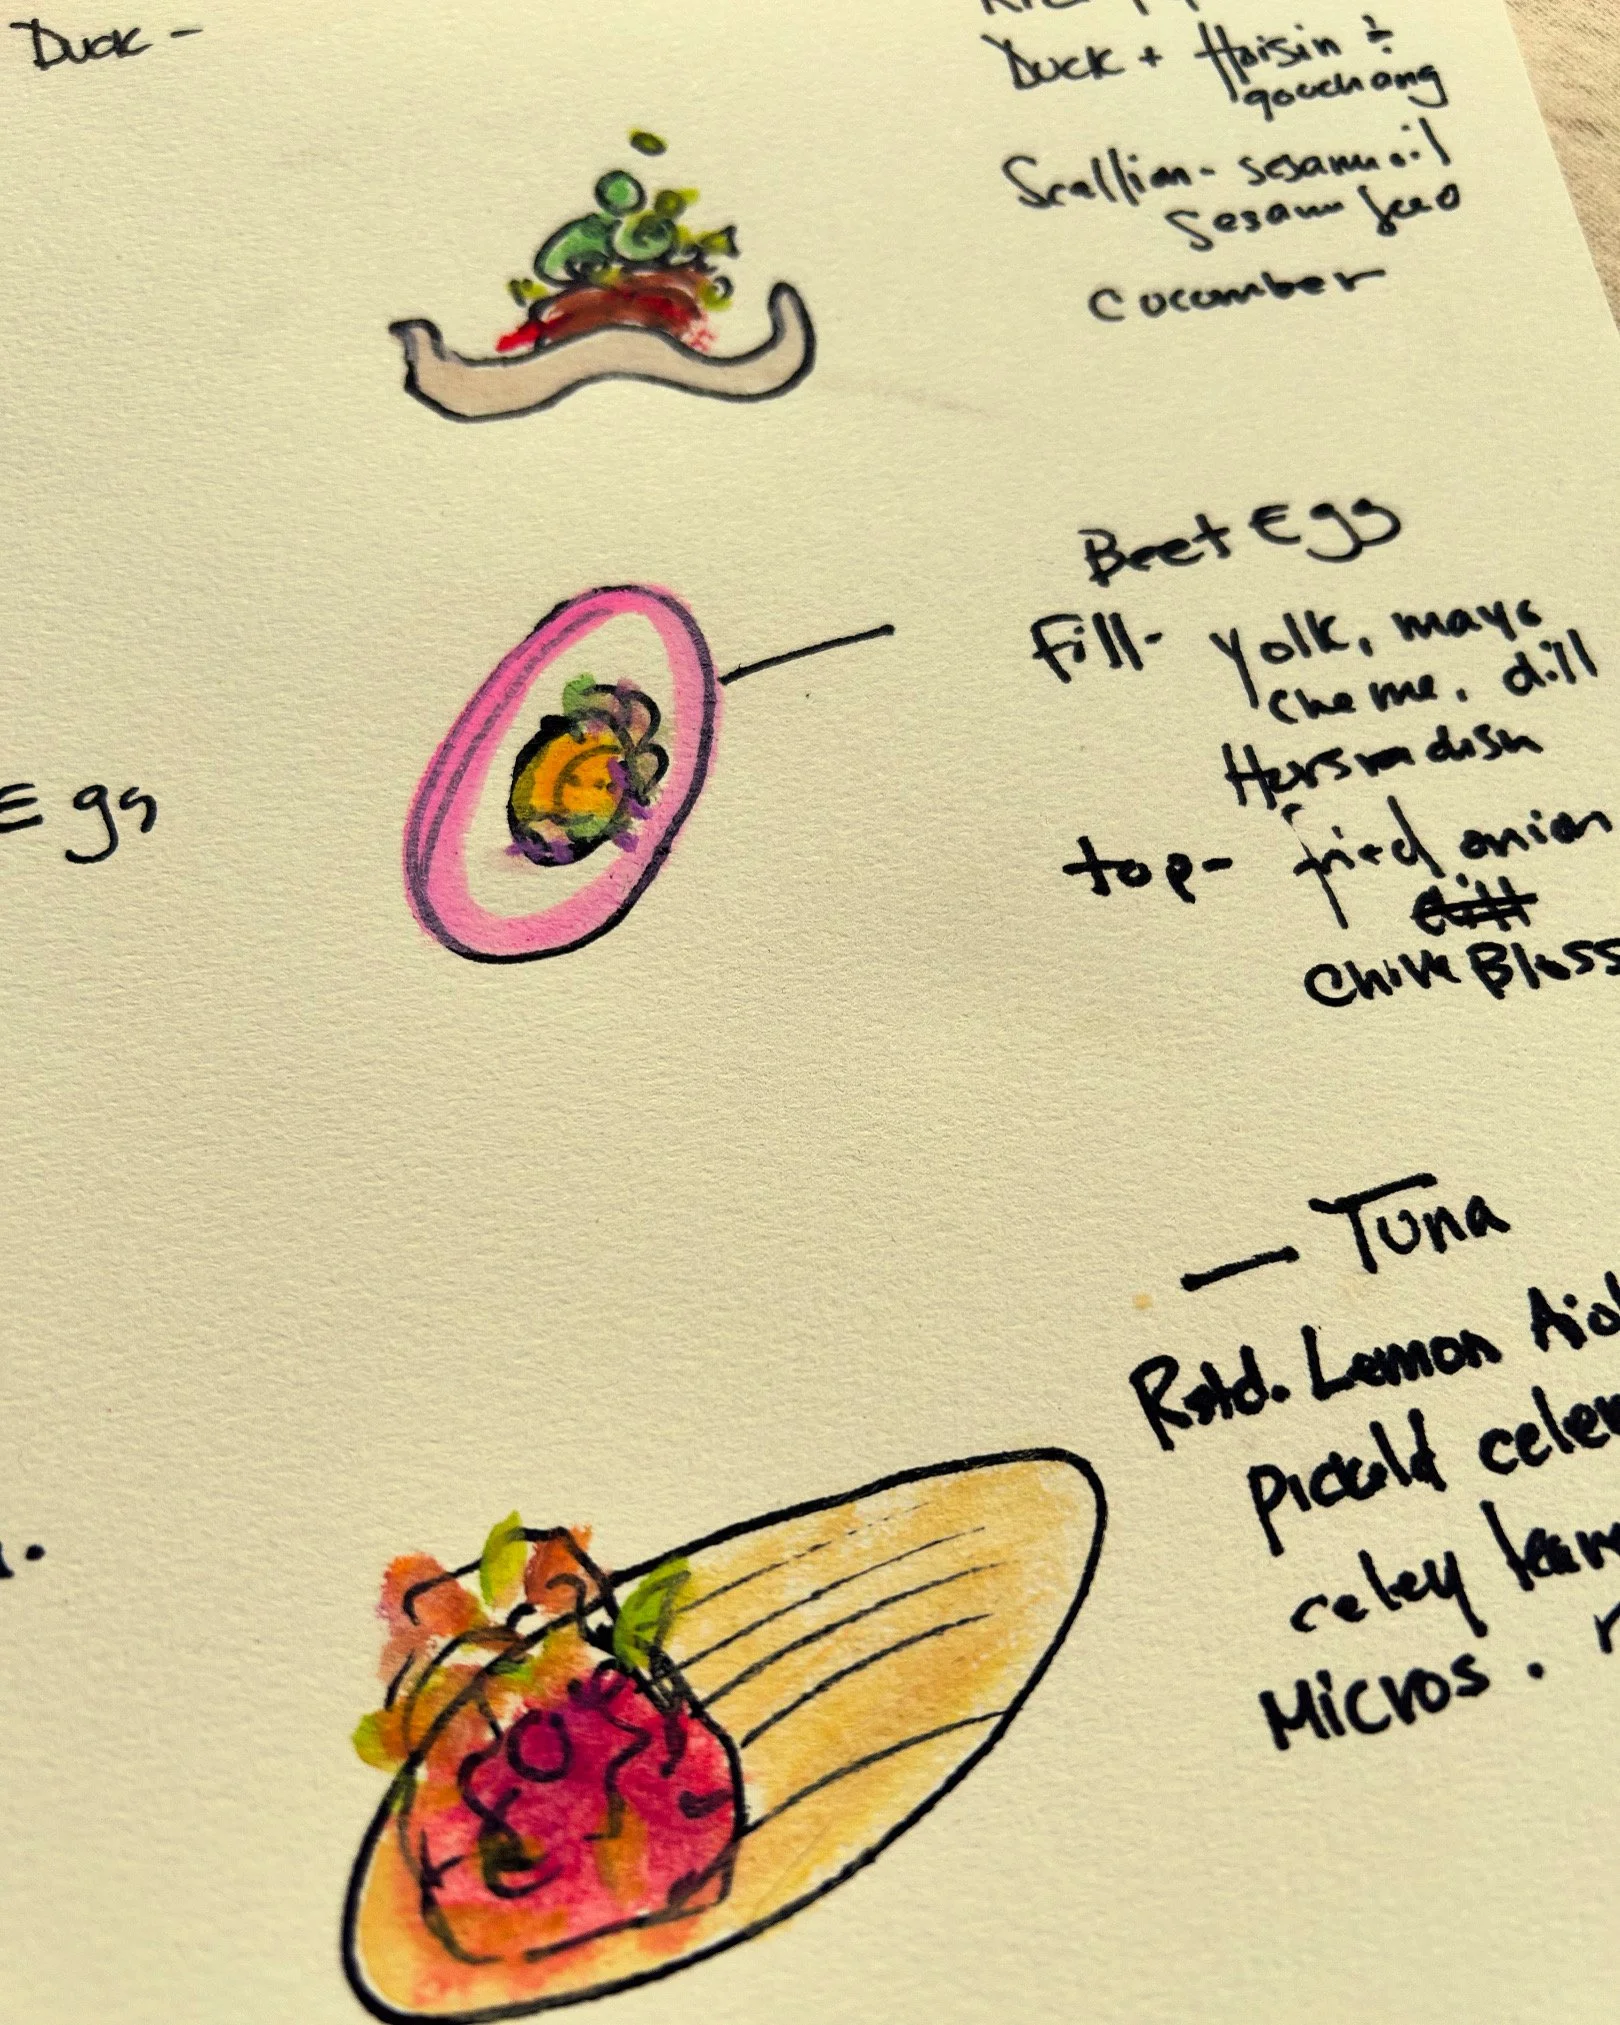 Duck -
Duck + Hoisin ÷
gouchang
Scallion - sesame oil
Sesame seed
Cucumber
Beet Egg
Fill - Yolk, mayo
creme, dill
Horsradish
Eggs
top - fried onion
dill
Chive Bloss
— Tuna
Rstd. Lemon Aiol
pickld celer
celey
Micros.